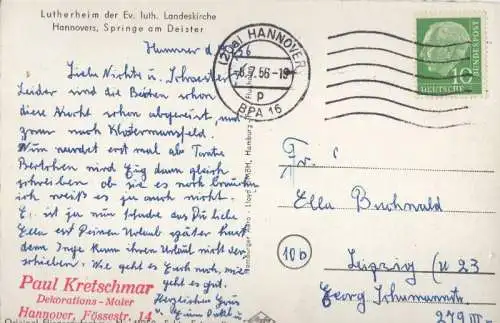 Lutherheim der Ev. luth. Landeskirche
Hannovers, Springe am Deister
Hannover d.
(20a) HANNOVER
6.7.56-19
p
BPA 16
DEUTSCHE BUNDESPOST
10
Liebe Nichte u. Schwester
Leider sind die Beiden schon
diese Nacht schon abgereist, und
zwar nach Klostermansfeld.
Nun wartet erst mal ab Tante
Bertchen wird Euch dann gleich
schreiben ob sie es noch brauchen
ich weiß es ja auch nicht.
E. ist ja nur schade aus Du liebe
Ella erst Deinen Urlaub später hast
denn Inge kann ihren Urlaub nicht ver
schieben. Wie geht es Euch noch, mir
geht es gut.
Herzlichen Grus
Paul Kretschmar
Dekorations-Maler
Hannover, Fössestr. 14
Fr.
Ella Buchwald
(10b)
Leipzig
Georg Schumannstr
279 III